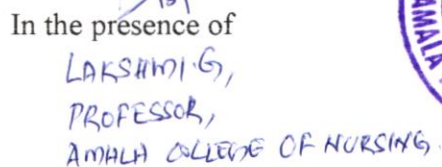 In the presence of
LAKSHMI.G,
PROFESSOR,
AMALA COLLEGE OF NURSING.
AMALA